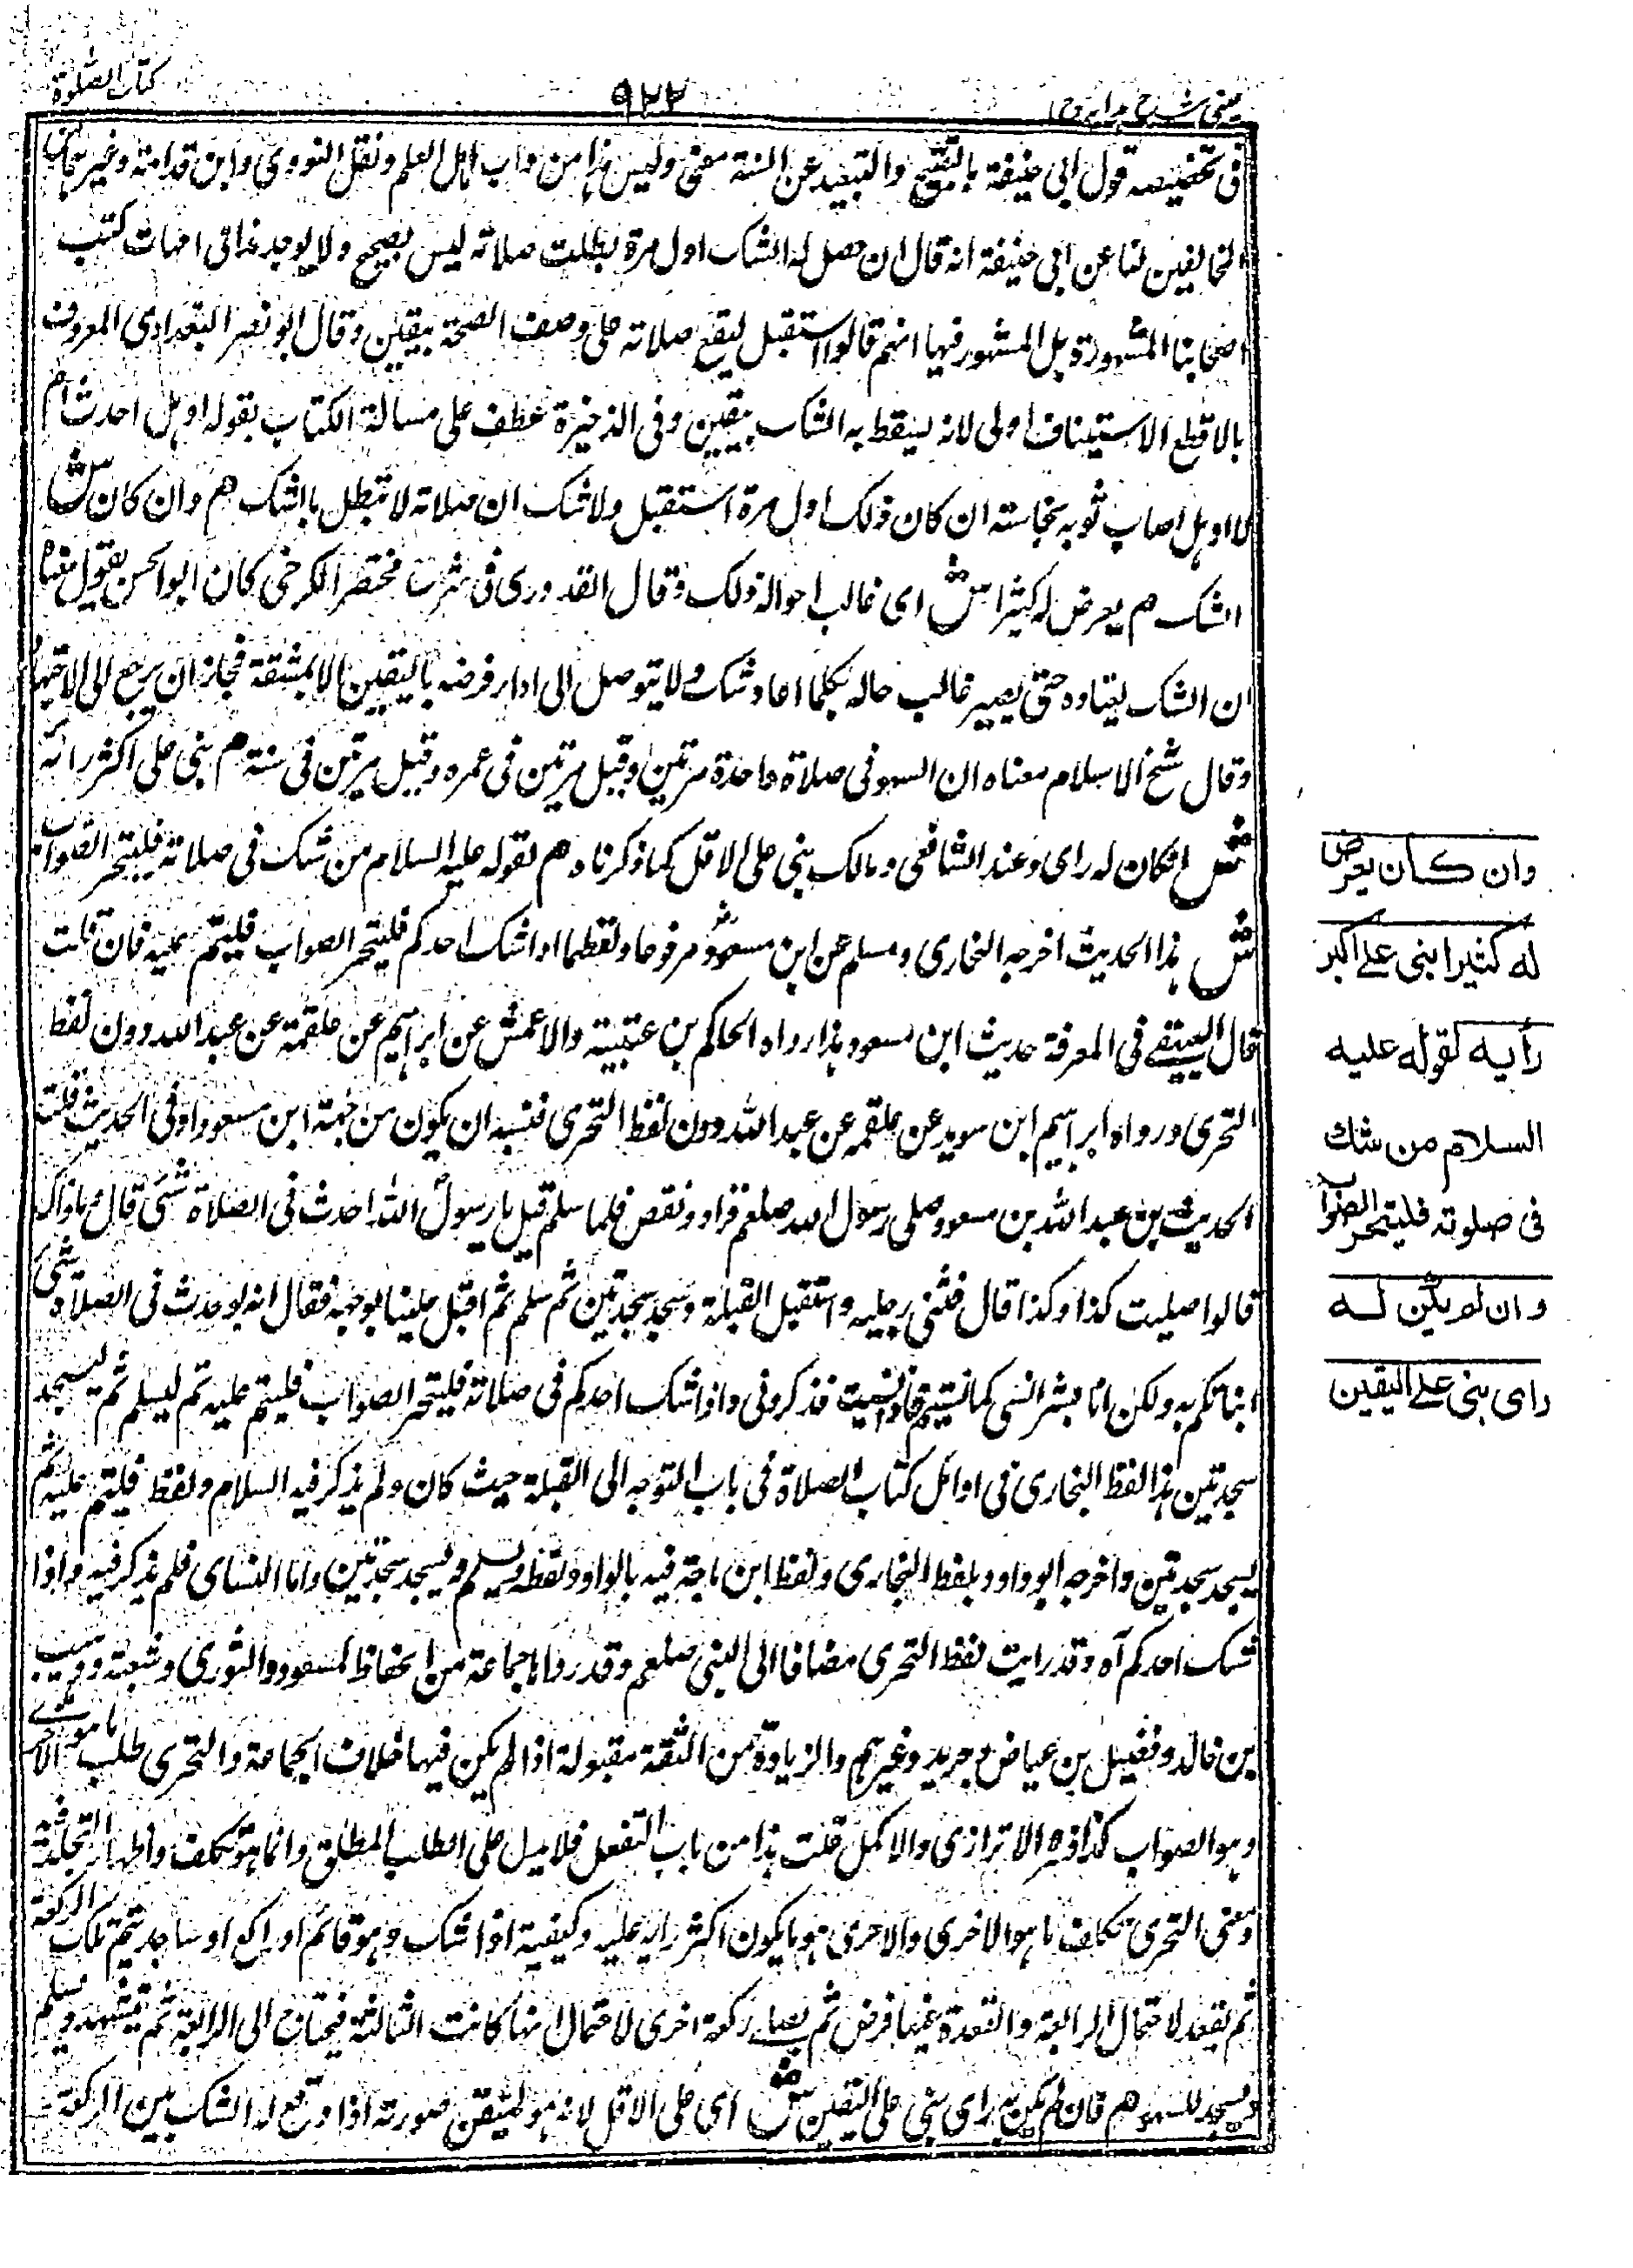 كتاب الصلوة
٩٢٢
عينى شرح هدايه ج ١
فى تخصيصه قول ابى حنيفة بالتقبيح والتبعيد عن السنة معنى وليس هذا من داب اهل العلم ونقل النووى وابن قدامة وغيرهما من
المخالفين لنا عن ابى حنيفة انه قال ان حصل له الشك اول مرة بطلت صلاته ليس بصحيح ولا يوجد هذا فى امهات كتب
اصحابنا المشهورة بل المشهور فيها انهم قالوا استقبل ليقع صلاته على وصف الصحة بيقين وقال ابو نصر البغدادى المعروف
بالاقطع الاستيناف اولى لانه يسقط به الشك بيقين وفى الذخيرة عطف على مسالة الكتاب بقوله او هل احدث ام
لا او هل اصاب ثوبه نجاسته ان كان ذلك اول مرة استقبل ولا شك ان صلاته لا تبطل بالشك هم وان كان ش
الشك م يعرض له كثيرا ش اى غالب احواله ذلك وقال القدورى فى شرح مختصر الكرخى كان ابو الحسن يقول معناه
ان الشك يعتاده حتى يصير غالب حاله بكلما اعاد شك ولا يتوصل الى اداء فرضه باليقين الا بمشقة فجاز ان يرجع الى الاجتهاد
وقال شيخ الاسلام معناه ان السهو فى صلاة واحدة مرتين وقيل مرتين فى عمره وقيل مرتين فى سنة م بنى على اكثر رائه
ش اكان له راى وعند الشافعى ومالك بنى على الاقل كما ذكرناه هم لقوله عليه السلام من شك فى صلاته فليتحر الصواب
ش هذا الحديث اخرجه البخارى ومسلم عن ابن مسعود رض مرفوعا ولفظهما اذا شك احدكم فليتحر الصواب فليتم عليه فان قلت
قال البيهقى فى المعرفة حديث ابن مسعود هذا رواه الحاكم بن عتيبة والاعمش عن ابراهيم عن علقمة عن عبد الله دون لفظ
التحرى ورواه ابراهيم ابن سويد عن علقمه عن عبد الله دون لفظ التحرى فتشبه ان يكون من جهة ابن مسعود او فى الحديث قلت
الحديث بن عبد الله بن مسعود صلى رسول الله صلعم فزاد ونقص فلما سلم قيل يا رسول الله احدث فى الصلاة شئ قال وما ذاك
قالوا صليت كذا وكذا قال فثنى رجليه واستقبل القبلة وسجد سجدتين ثم سلم ثم اقبل علينا بوجهه فقال انه لو حدث فى الصلاة شئ
انبأتكم به ولكن انا بشر انسى كما تنسون فاذا نسيت فذكرونى واذا شك احدكم فى صلاته فليتحر الصواب فليتم عليه ثم ليسلم ثم ليسجد
سجدتين هذا لفظ البخارى فى اوائل كتاب الصلاة فى باب التوجه الى القبلة حيث كان ولم يذكر فيه السلام ولفظ فليتم عليه ثم
يسجد سجدتين واخرجه ابو داود بلفظ البخارى ولفظ ابن ماجة فيه بالواو ولفظه ويسلم ويسجد سجدتين واما النسائى فلم يذكر فيه واذا
شك احدكم آه وقد رايت لفظ التحرى مضافا الى النبى صلعم وقد رواها جماعة من الحفاظ كمسعود والثورى وشعبة ووهيب
بن خالد وفضيل بن عياض وجرير وغيرهم والزيادة من الثقة مقبولة اذا لم يكن فيها خلاف الجماعة والتحرى طلب ما هو الاحرى
وهو الصواب كذا فسره الاترازى والاكمل قلت هذا من باب التفعل فلا يدل على الطلب المطلق وانما هو تكلف
ومعنى التحرى تكلف ما هو الاحرى والاحرى هو ما يكون اكثر رايه عليه وكيفية اذا شك وهو قائم او راكع او ساجد يتم تلك الركعة
ثم يقعد لاحتمال الرابعة والقعدة فيها فرض ثم يصلى ركعة اخرى لاحتمال انها كانت الثالثة فيحتاج الى الرابعة ثم يتشهد ويسلم
ويسجد للسهو هم فان لم يكن له راى بنى على اليقين ش اى على الاقل لانه هو المتيقن صورته اذا وقع له الشك بين الركعة
وان كان يعرض
له كثيرا بنى على اكبر
رأيه لقوله عليه
السلام من شك
فى صلوته فليتحر الصواب
وان لم يكن له
راى بنى على اليقين